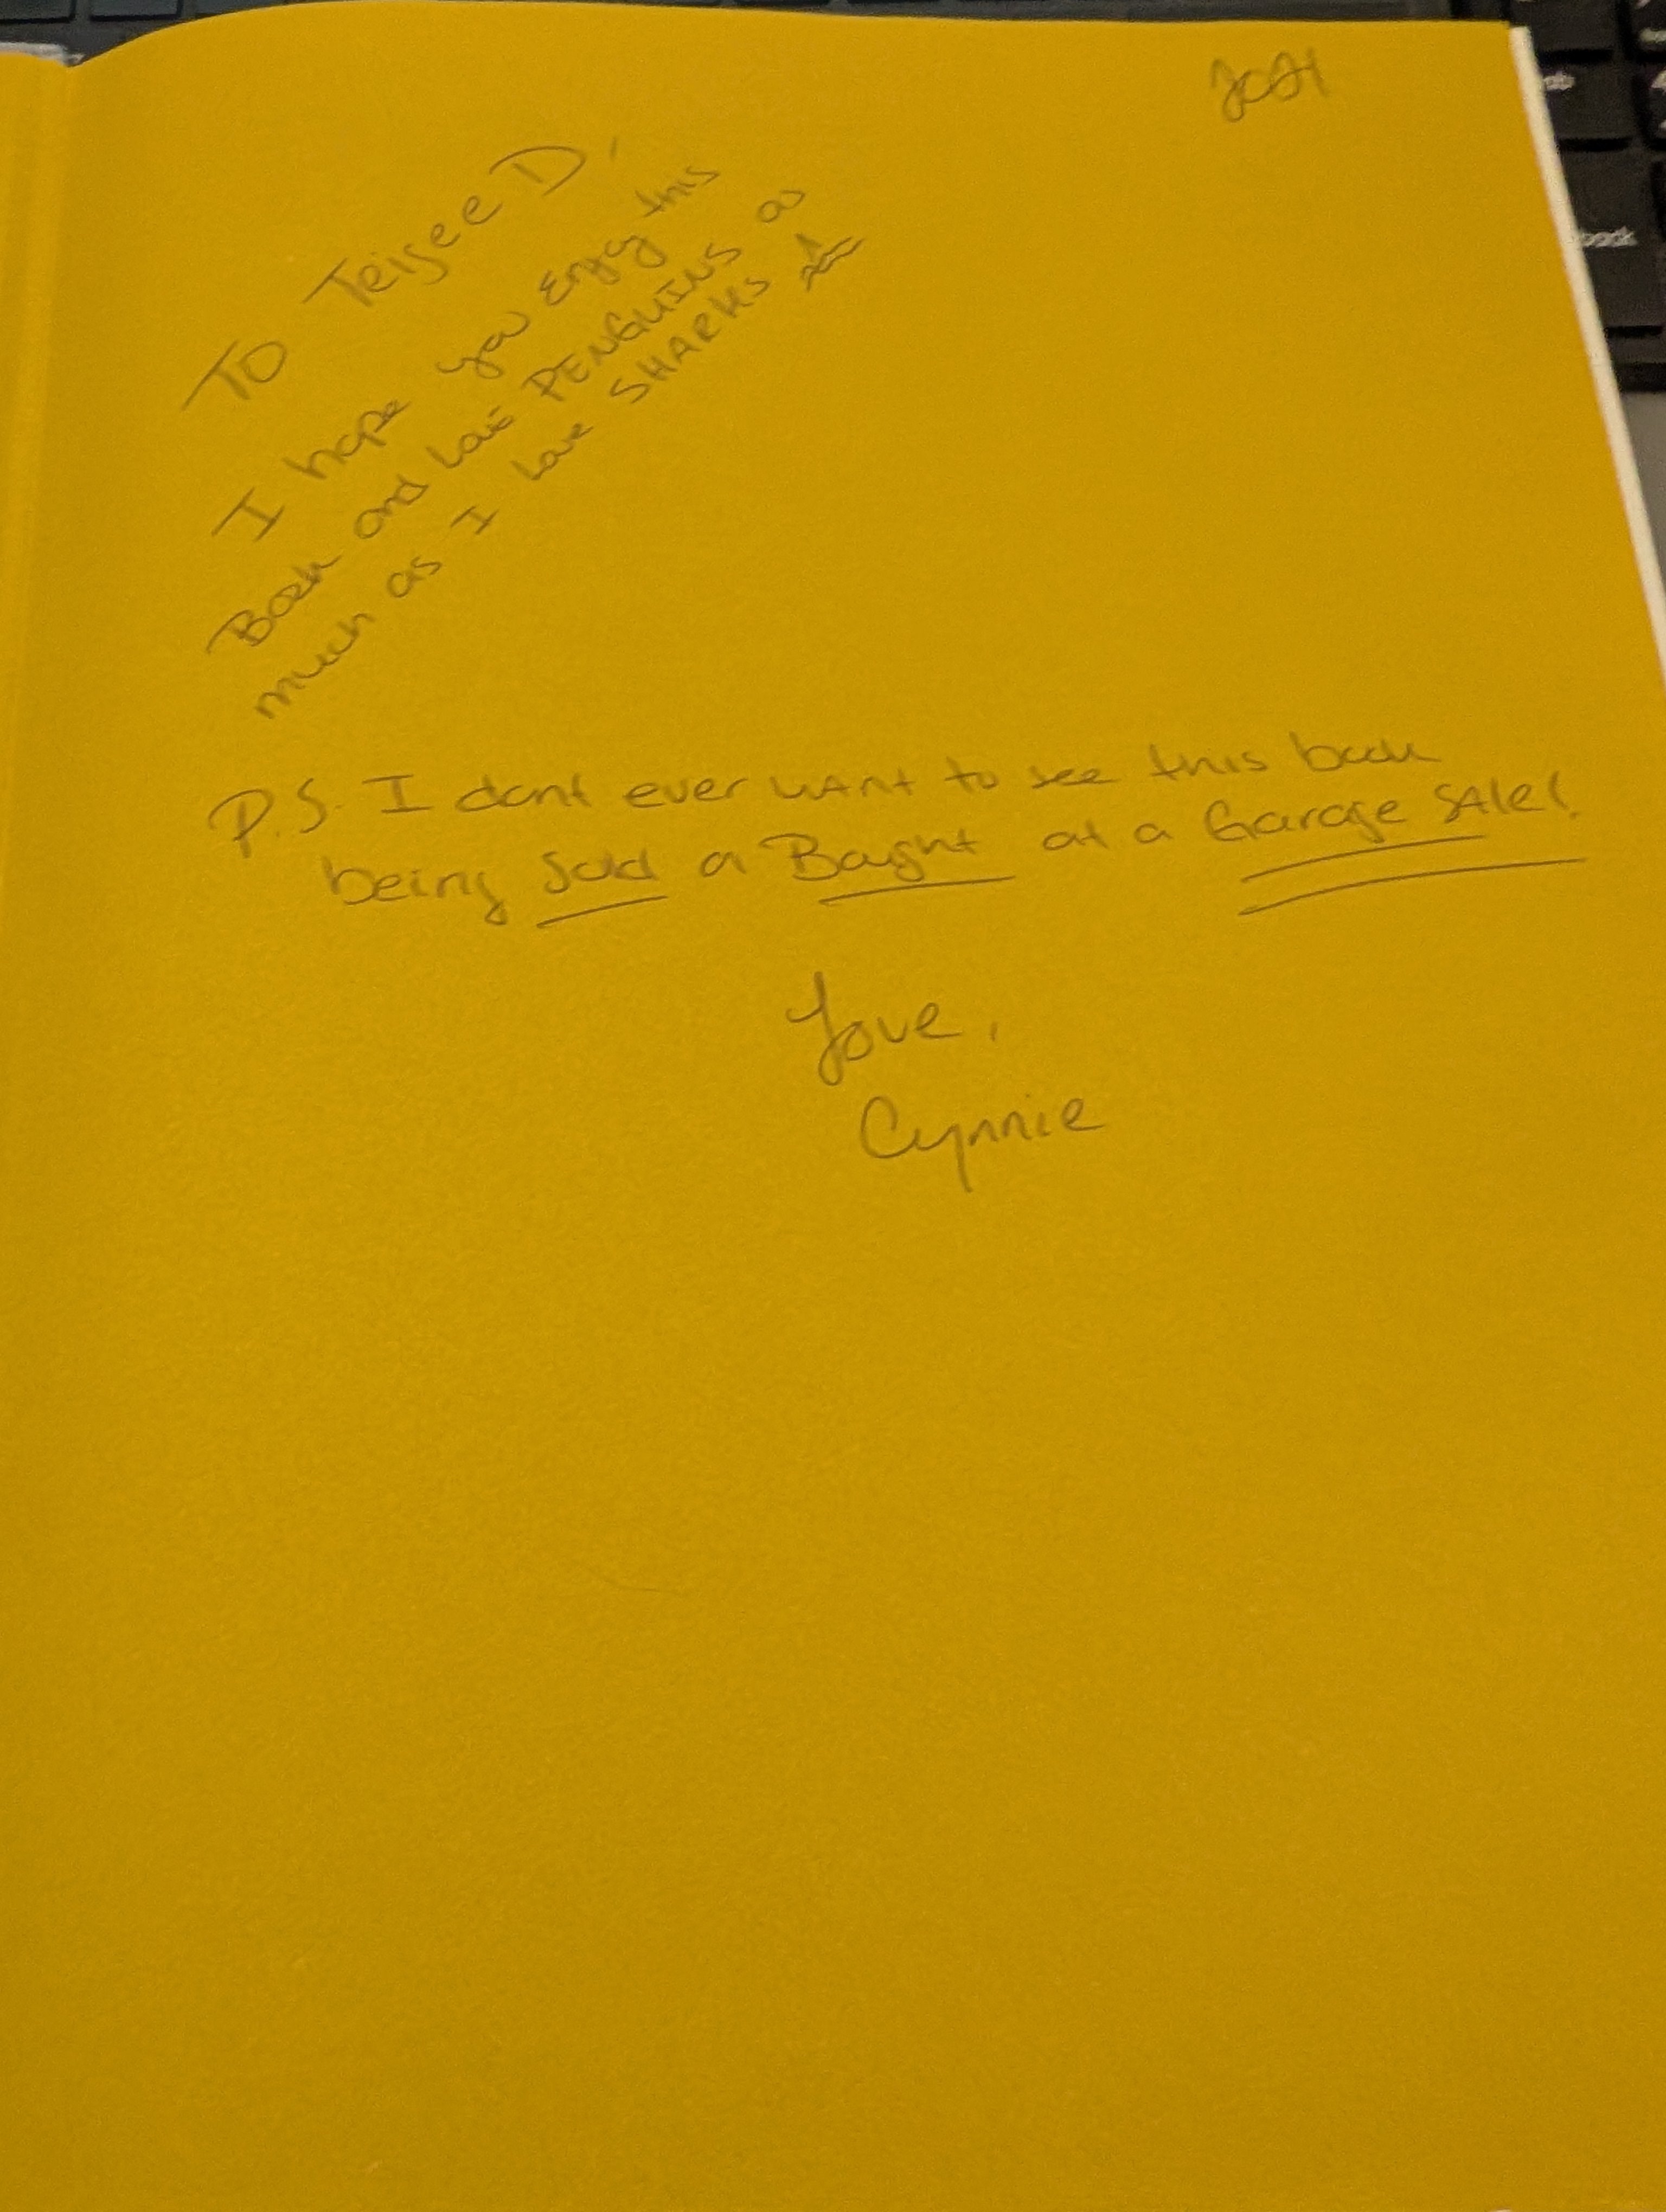 2021
To TeiseeD,
I hope you Enjoy this
Book and Love PENGUINS as
much as I Love SHARKS
P.S. I dont ever want to see this book
being Sold or Bought at a Garage SAle!
Love,
Cynnie
back